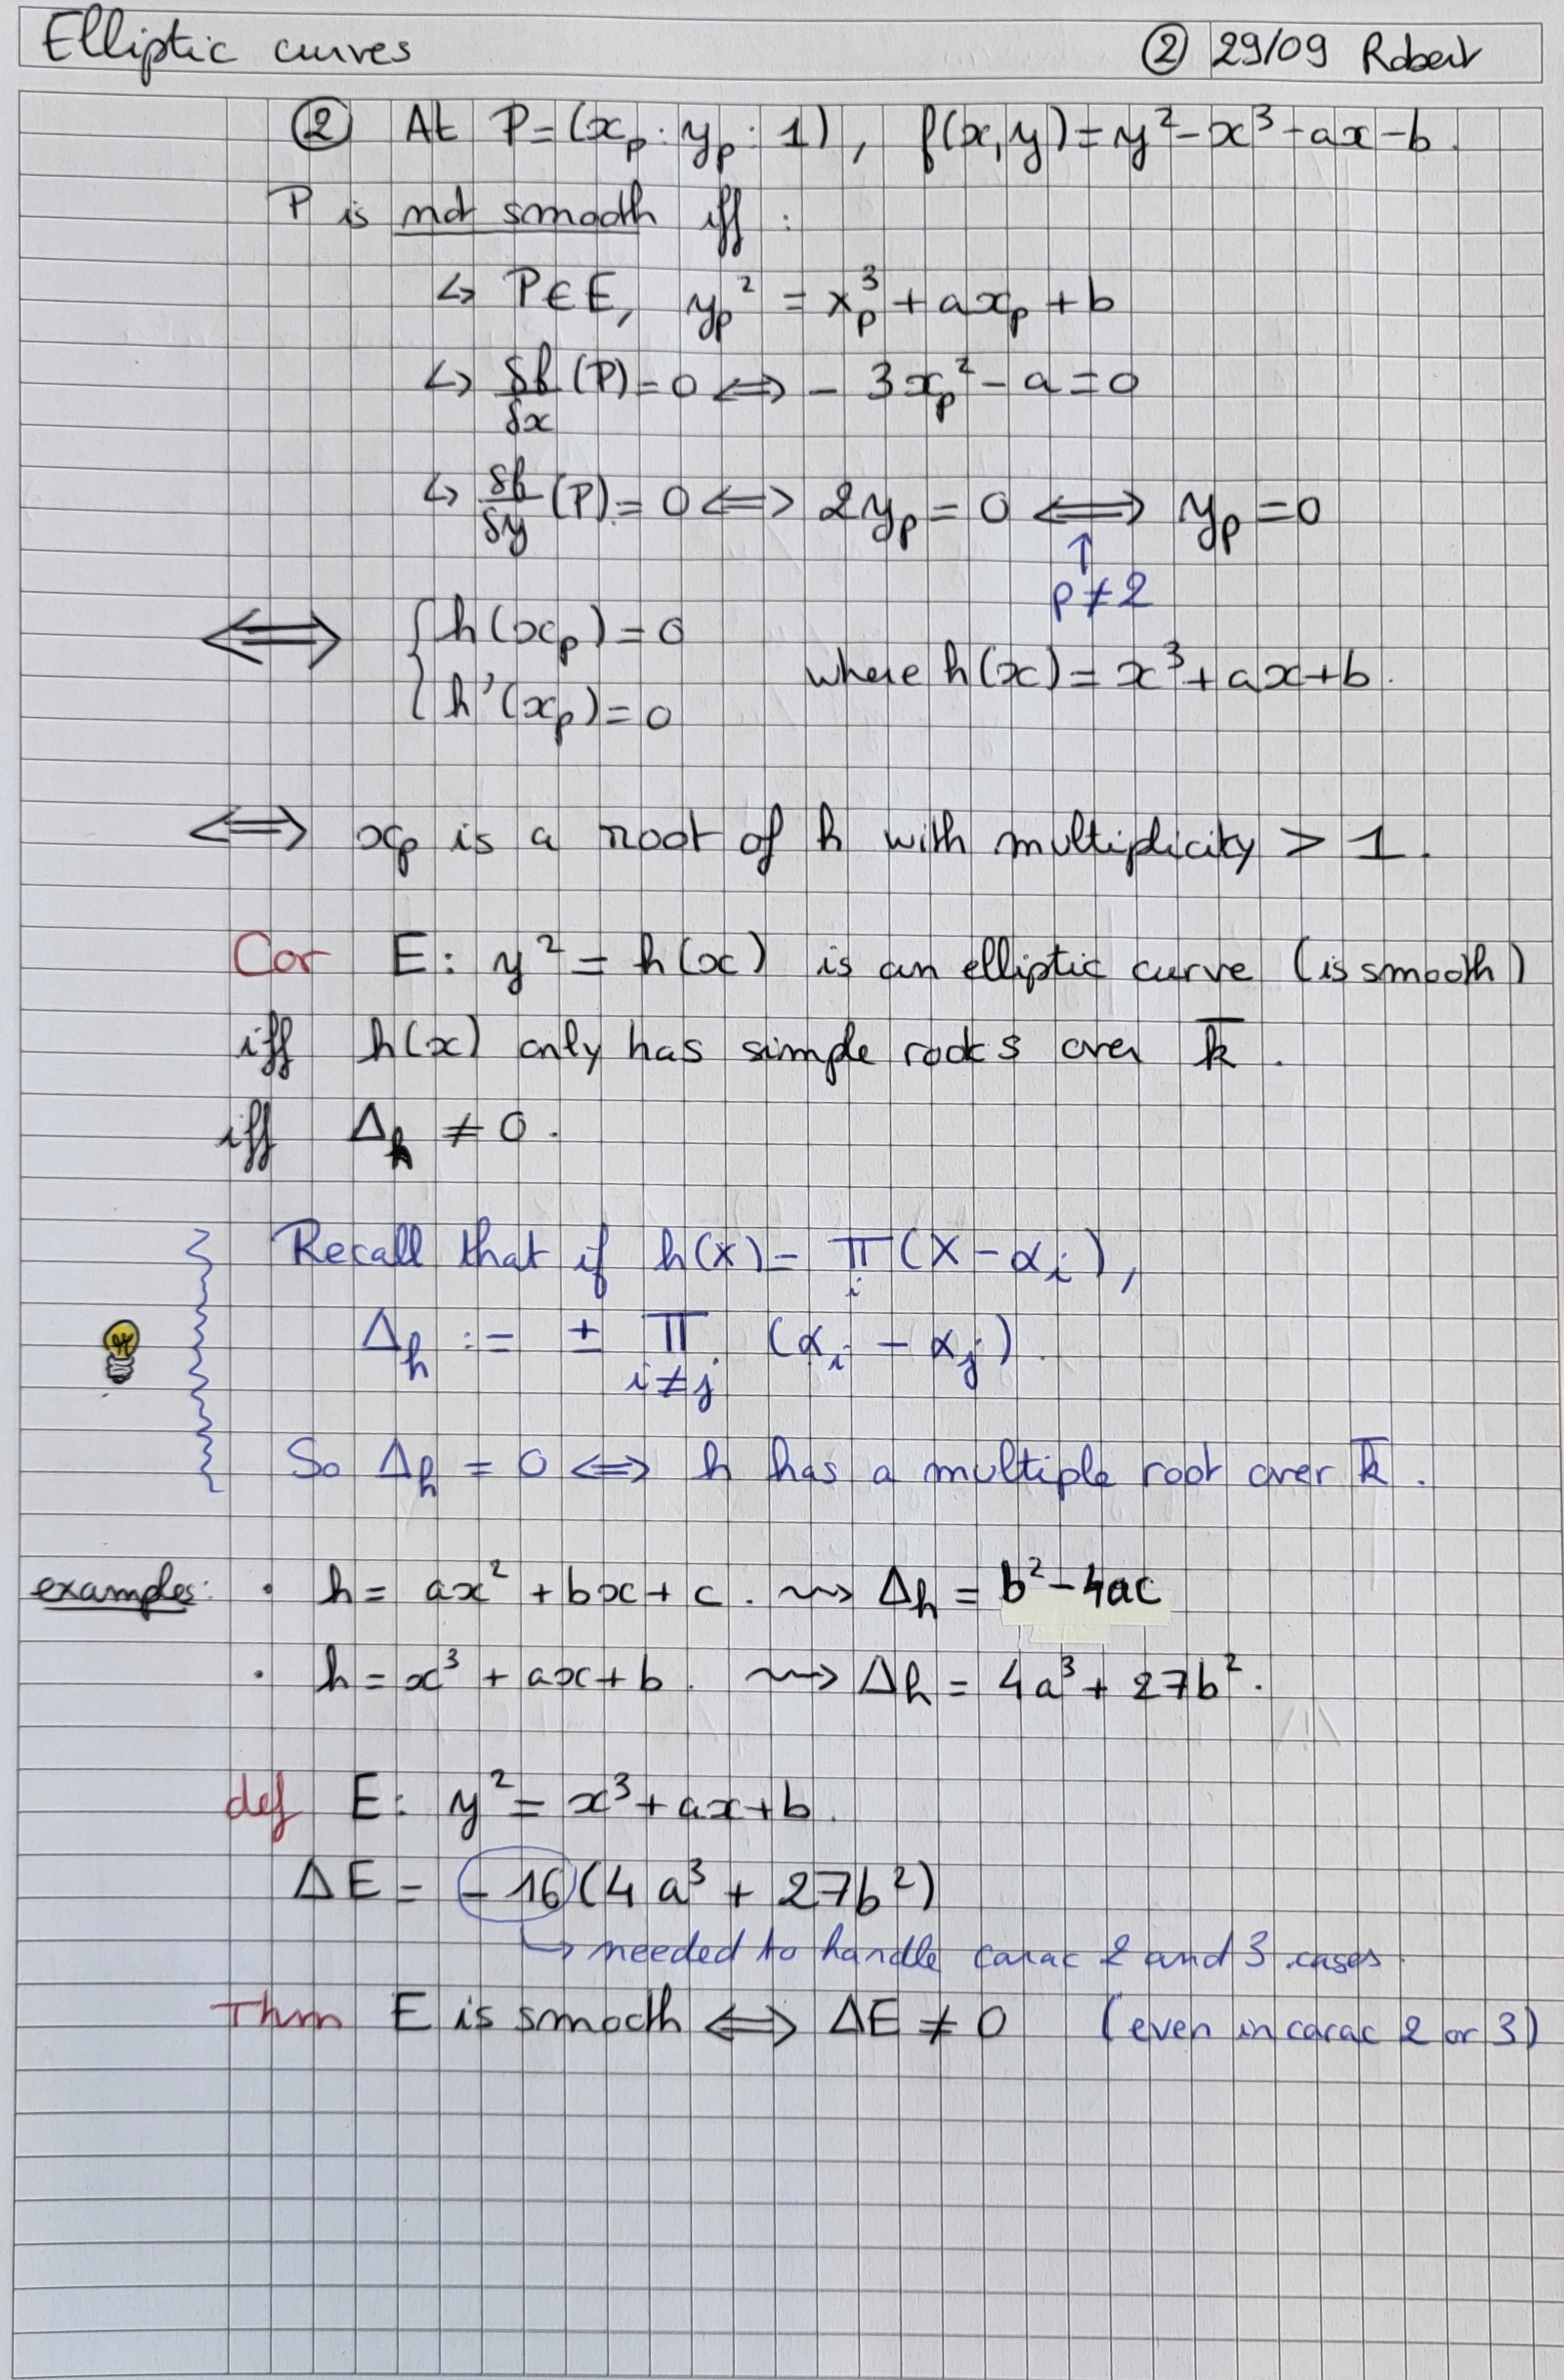 Elliptic curves ② 29/09 Robert
② At P=(x_p : y_p : 1), f(x,y)=y²-x³-ax-b.
P is not smooth iff :
↳ P∈E, y_p² = x_p³ + ax_p + b
↳ δf/δx (P)=0 ⟺ - 3x_p² - a = 0
↳ δf/δy (P)=0 ⟺ 2y_p = 0 ⟺ y_p = 0
↑
p≠2
⟺ { h(x_p)=0
h'(x_p)=0 where h(x)= x³+ax+b.
⟺ x_p is a root of h with multiplicity > 1.
Cor E: y² = h(x) is an elliptic curve (is smooth)
iff h(x) only has simple roots over k̅.
iff Δ_h ≠ 0.
Recall that if h(X)= ∏_i (X-α_i),
Δ_h := ± ∏_{i≠j} (α_i - α_j).
So Δ_h = 0 ⟺ h has a multiple root over k̅.
examples: • h = ax² + bx + c. ⇝ Δ_h = b²-4ac
• h = x³ + ax + b. ⇝ Δ_h = 4a³ + 27b².
def E: y² = x³+ax+b.
ΔE = -16(4a³ + 27b²)
↳ needed to handle carac 2 and 3 cases.
Thm E is smooth ⟺ ΔE ≠ 0 (even in carac 2 or 3)